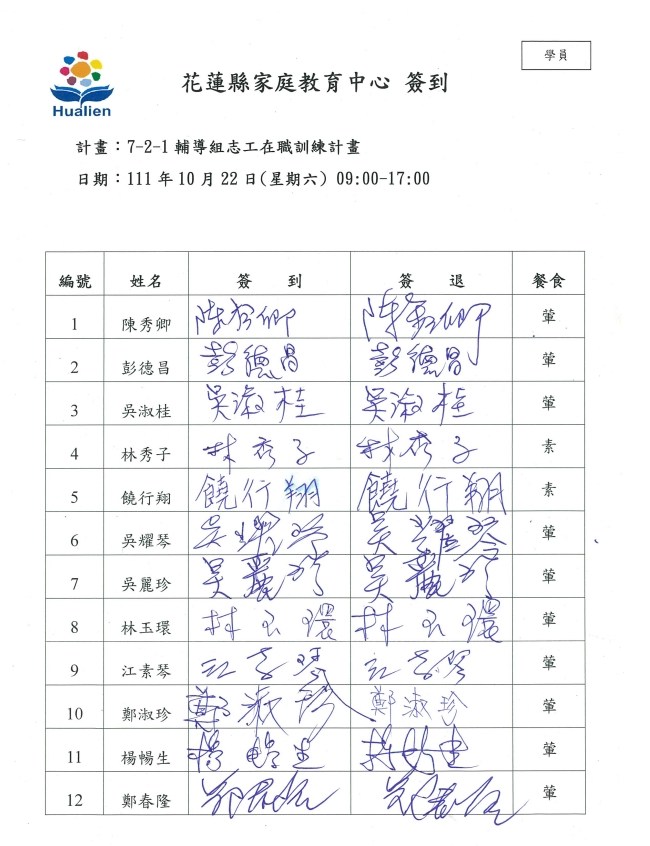 學員
花蓮縣家庭教育中心 簽到
Hualien
計畫：7-2-1 輔導組志工在職訓練計畫
日期：111 年 10 月 22 日(星期六) 09:00-17:00
編號 姓名 簽 到 簽 退 餐食
1 陳秀卿 陳秀卿 陳秀卿 葷
2 彭德昌 彭德昌 彭德昌 葷
3 吳淑桂 吳淑桂 吳淑桂 葷
4 林秀子 林秀子 林秀子 素
5 饒行翔 饒行翔 饒行翔 素
6 吳耀琴 吳耀琴 吳耀琴 葷
7 吳麗珍 吳麗珍 吳麗珍 葷
8 林玉環 林玉環 林玉環 葷
9 江素琴 江素琴 江素琴 葷
10 鄭淑珍 鄭淑珍 鄭淑珍 葷
11 楊暢生 楊暢生 楊暢生 葷
12 鄭春隆 鄭春隆 鄭春隆 葷